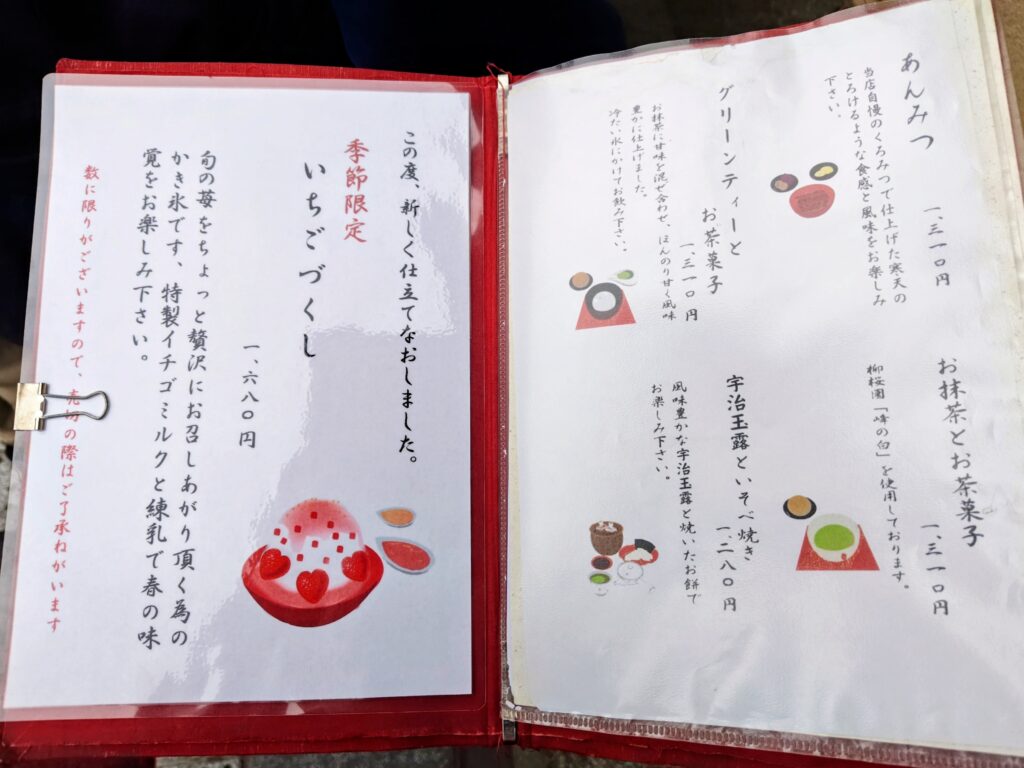 この度、新しく仕立てなおしました。
季節限定
いちごづくし
一、六八〇円
旬の苺をちょっと贅沢にお召しあがり頂く為の
かき氷です、特製イチゴミルクと練乳で春の味
覚をお楽しみ下さい。
数に限りがございますので、売切の際はご了承ねがいます
あんみつ
一、三一〇円
当店自慢のくろみつで仕上げた寒天の
とろけるような食感と風味をお楽しみ
下さい。
グリーンティーと
お茶菓子
一、三一〇円
お抹茶に甘味を混ぜ合わせ、ほんのり甘く風味
豊かに仕上げました。
冷たい氷にかけてお飲み下さい。
お抹茶とお茶菓子
一、三一〇円
柳桜園「峰の白」を使用しております。
宇治玉露といそべ焼き
一、二八〇円
風味豊かな宇治玉露と焼いたお餅で
お楽しみ下さい。